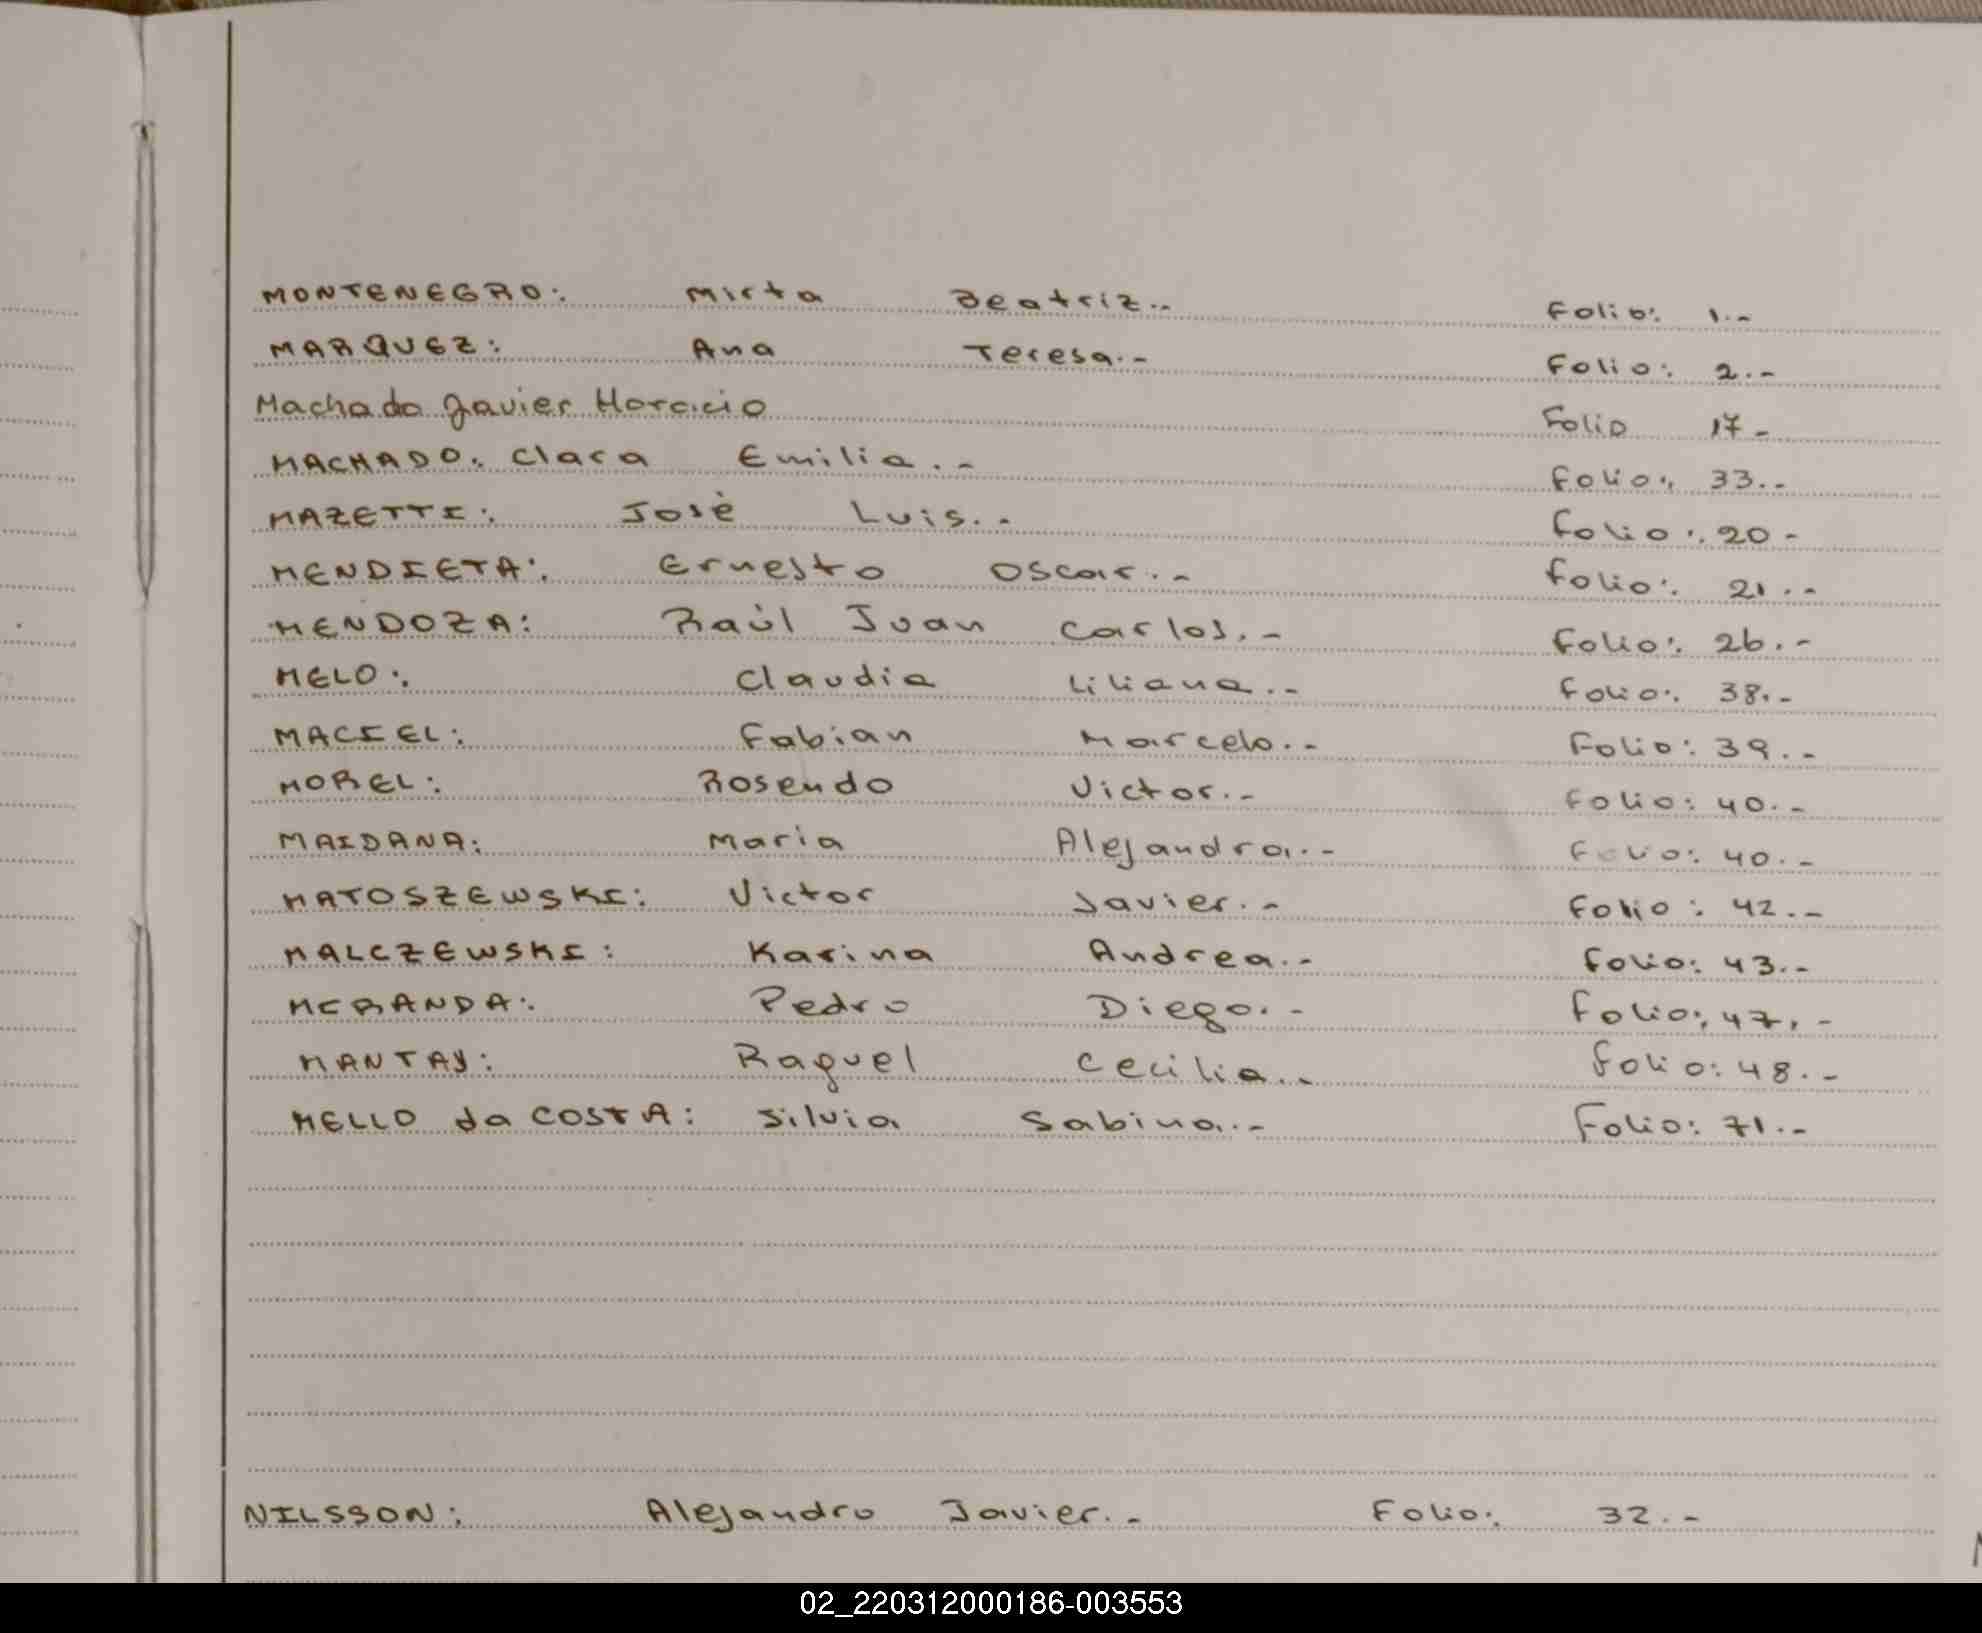 MONTENEGRO: Mirta Beatriz.- Folio: 1.-
MARQUEZ: Ana Teresa.- Folio: 2.-
Machado Javier Horacio Folio 17-
MACHADO: Clara Emilia.- Folio: 33.-
MAZETTI: José Luis.- Folio: 20-
MENDIETA: Ernesto Oscar.- Folio: 21.-
MENDOZA: Raúl Juan Carlos.- Folio: 26.-
MELO: Claudia Liliana.- Folio: 38.-
MACIEL: Fabian Marcelo.- Folio: 39.-
MOREL: Rosendo Victor.- Folio: 40.-
MAIDANA: Maria Alejandra.- Folio: 40.-
MATOSZEWSKI: Victor Javier.- Folio: 42.-
MALCZEWSKI: Karina Andrea.- Folio: 43.-
MIRANDA: Pedro Diego.- Folio: 47.-
MANTAY: Raquel Cecilia.- Folio: 48.-
MELLO da COSTA: Silvia Sabina.- Folio: 71.-
NILSSON: Alejandro Javier.- Folio: 32.-
02_220312000186-003553